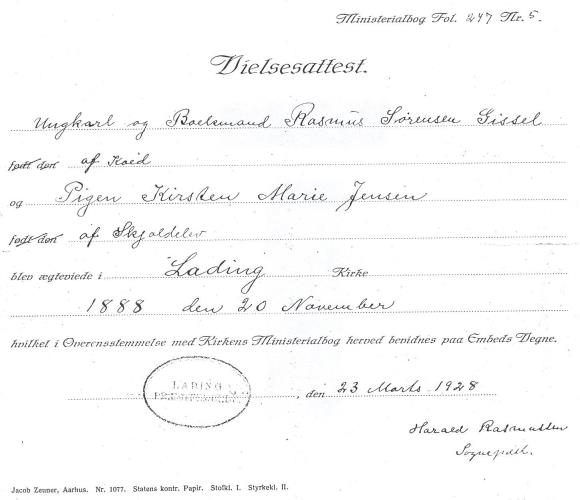 Ministerialbog Fol. 247 Nr. 5.
Vielsesattest.
Ungkarl og Boelsmand Rasmus Sørensen Gissel
født den af Koed
og Pigen Kirsten Marie Jensen
født den af Skjoldelev
blev ægteviede i Lading Kirke
1888 den 20 November
hvilket i Overensstemmelse med Kirkens Ministerialbog herved bevidnes paa Embeds Vegne.
LADING
, den 23 Marts 1928
Harald Rasmussen
Sognepræst.
Jacob Zeuner, Aarhus. Nr. 1077. Statens kontr. Papir. Stofkl. I. Styrkekl. II.